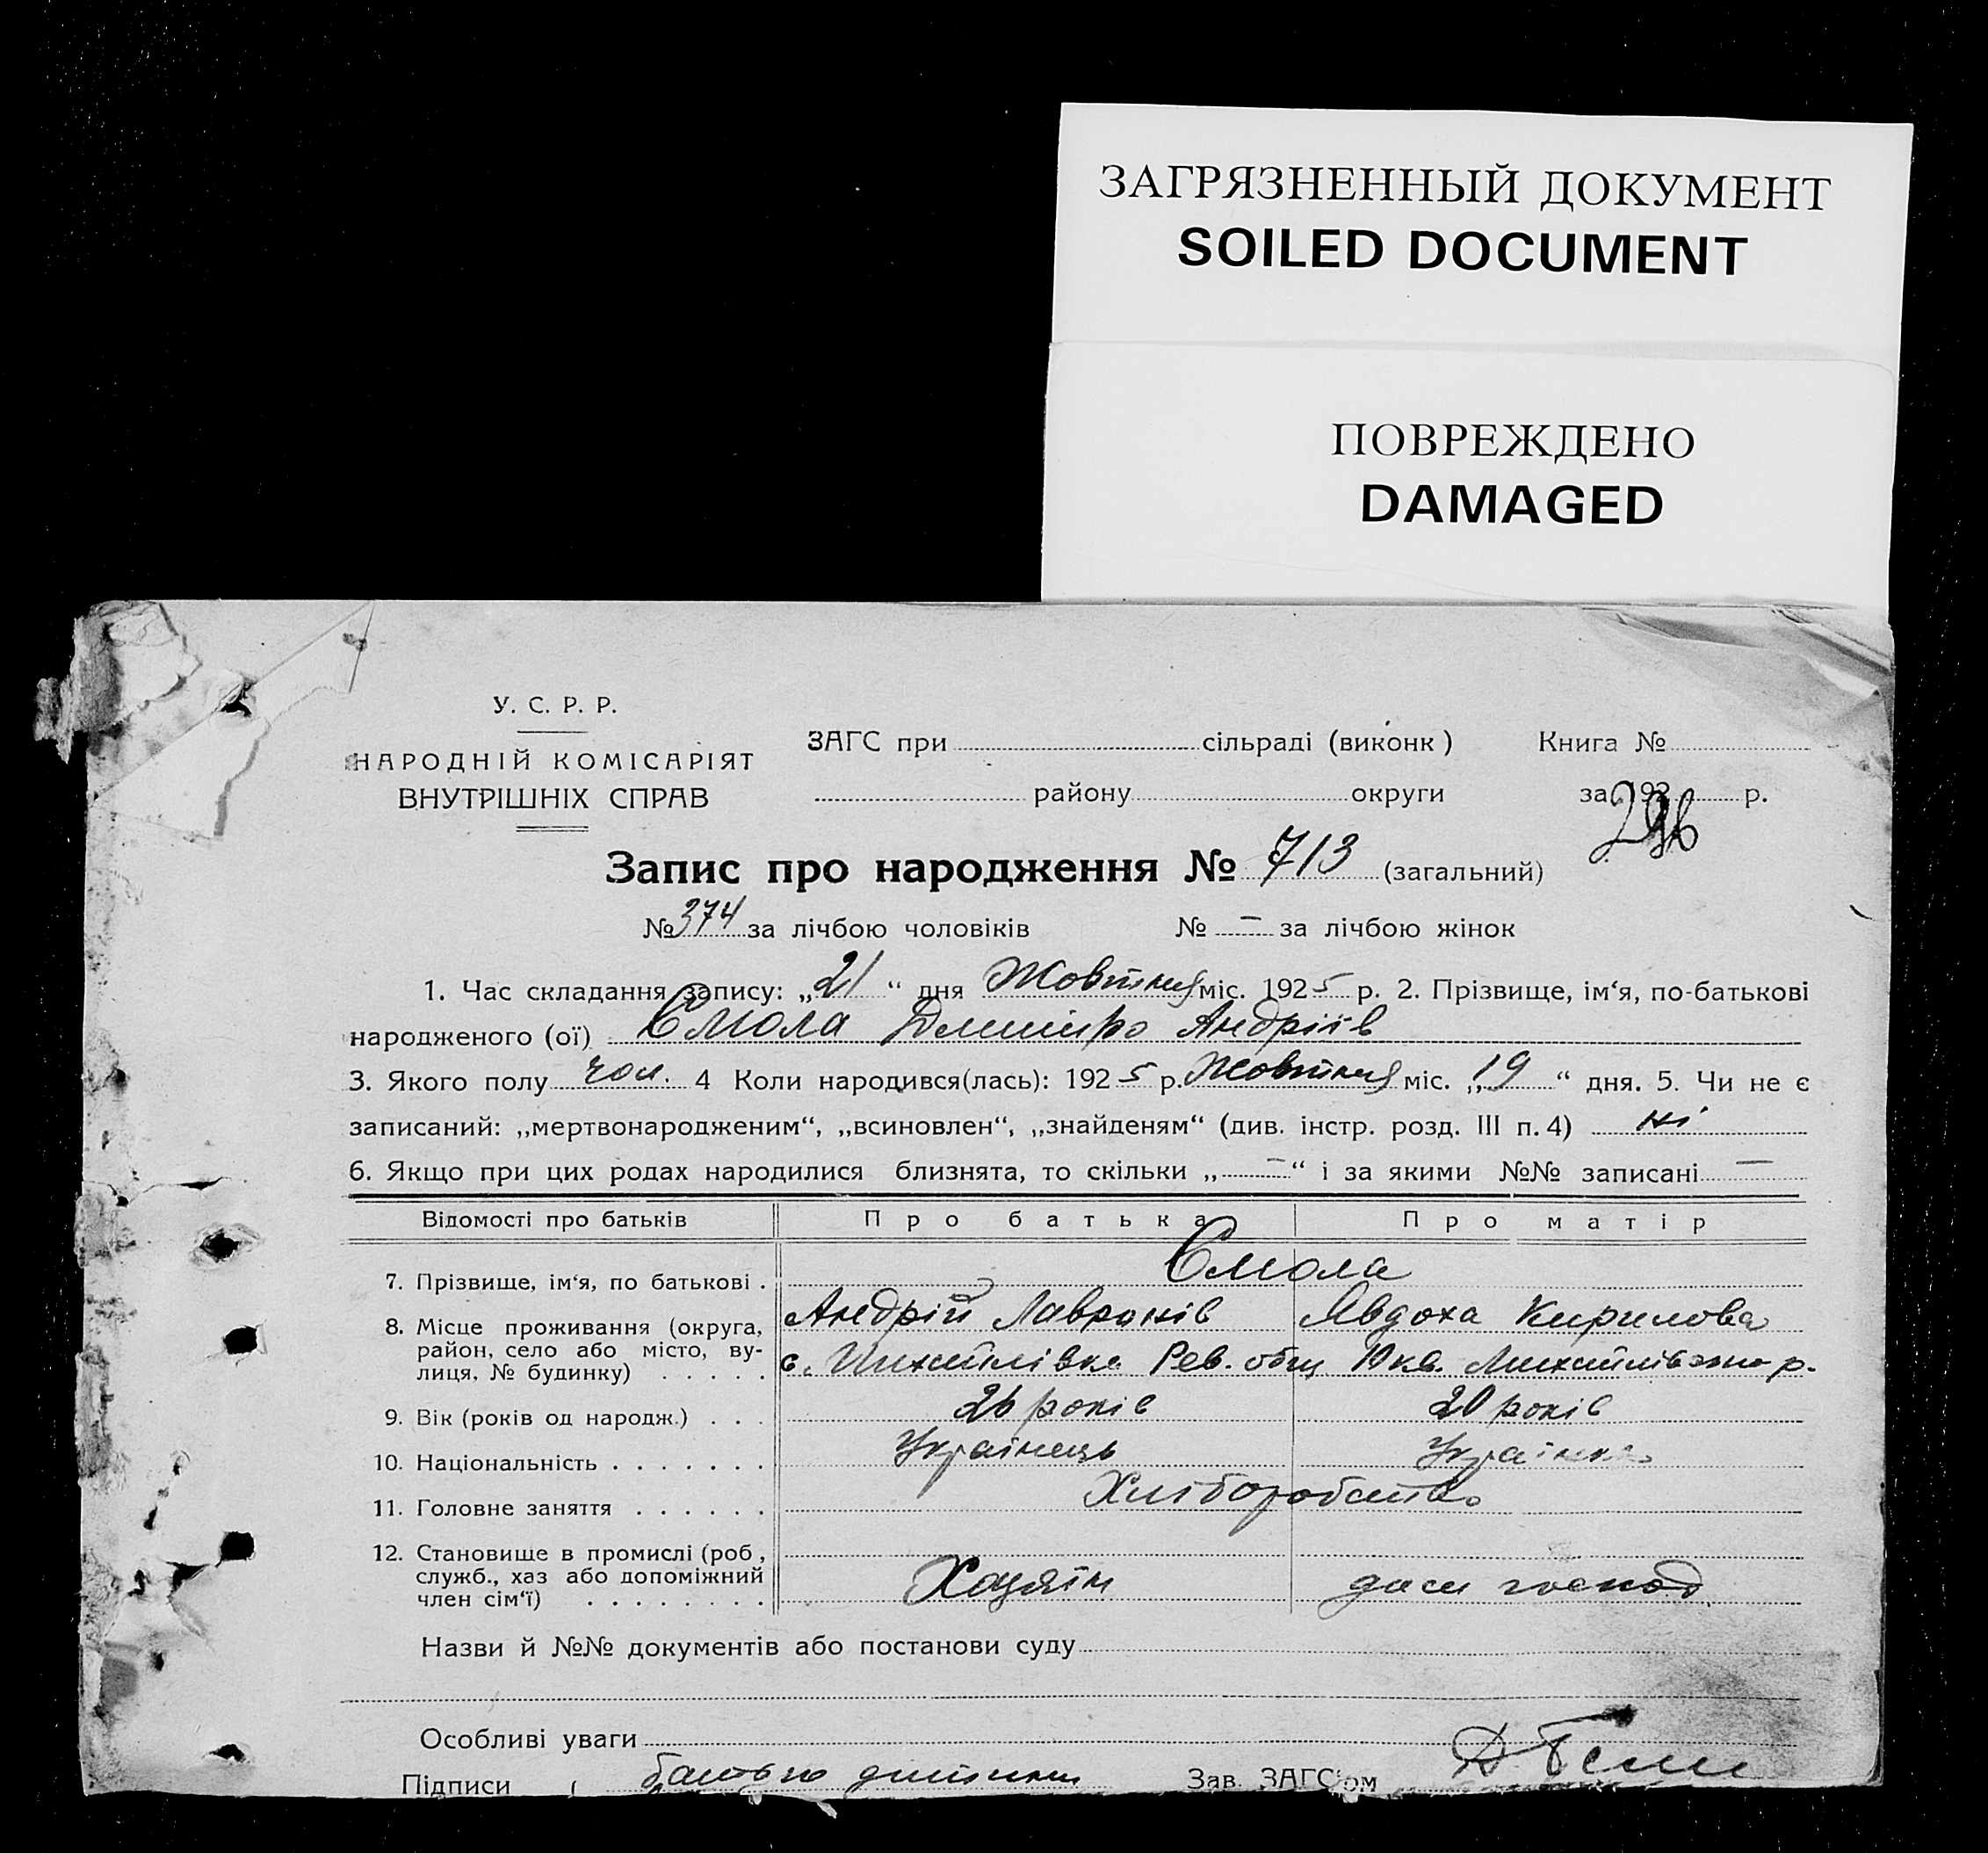 ЗАГРЯЗНЕННЫЙ ДОКУМЕНТ
SOILED DOCUMENT
ПОВРЕЖДЕНО
DAMAGED
У. С. Р. Р.
НАРОДНІЙ КОМІСАРІЯТ
ВНУТРІШНІХ СПРАВ
ЗАГС при сільраді (виконк) Книга №
району округи за 192 р.
Запис про народження № 713 (загальний)
№ 374 за лічбою чоловіків № — за лічбою жінок
1. Час складання запису: „21“ дня Жовтня міс. 1925 р. 2. Прізвище, ім‘я, по-батькові
народженого (ої) Смола Дмитро Андріїв
3. Якого полу чол. 4 Коли народився(лась): 1925 р. Жовтня міс. „19“ дня. 5. Чи не є
записаний: „мертвонародженим“, „всиновлен“, „знайденям“ (див. інстр. розд. III п. 4) ні
6. Якщо при цих родах народилися близнята, то скільки „—“ і за якими №№ записані —
Відомості про батьків Про батька Про матір
7. Прізвище, ім‘я, по батькові . Смола
Андрій Явдоха Кирилова
8. Місце проживання (округа,
район, село або місто, ву-
лиця, № будинку) . . . . . с. Михайлівка Рев. общ 10 кв. р.
9. Вік (років од народж.) . . . 26 років 20 років
10. Національність . . . . . . . Українець Українка
11. Головне заняття . . . . . . Хліборобство
12. Становище в промислі (роб,
служб., хаз або допоміжний
член сім‘ї) . . . . . . . . Хазяїн господ.
Назви й №№ документів або постанови суду
Особливі уваги
Підписи батько дитини Зав. ЗАГС‘ом